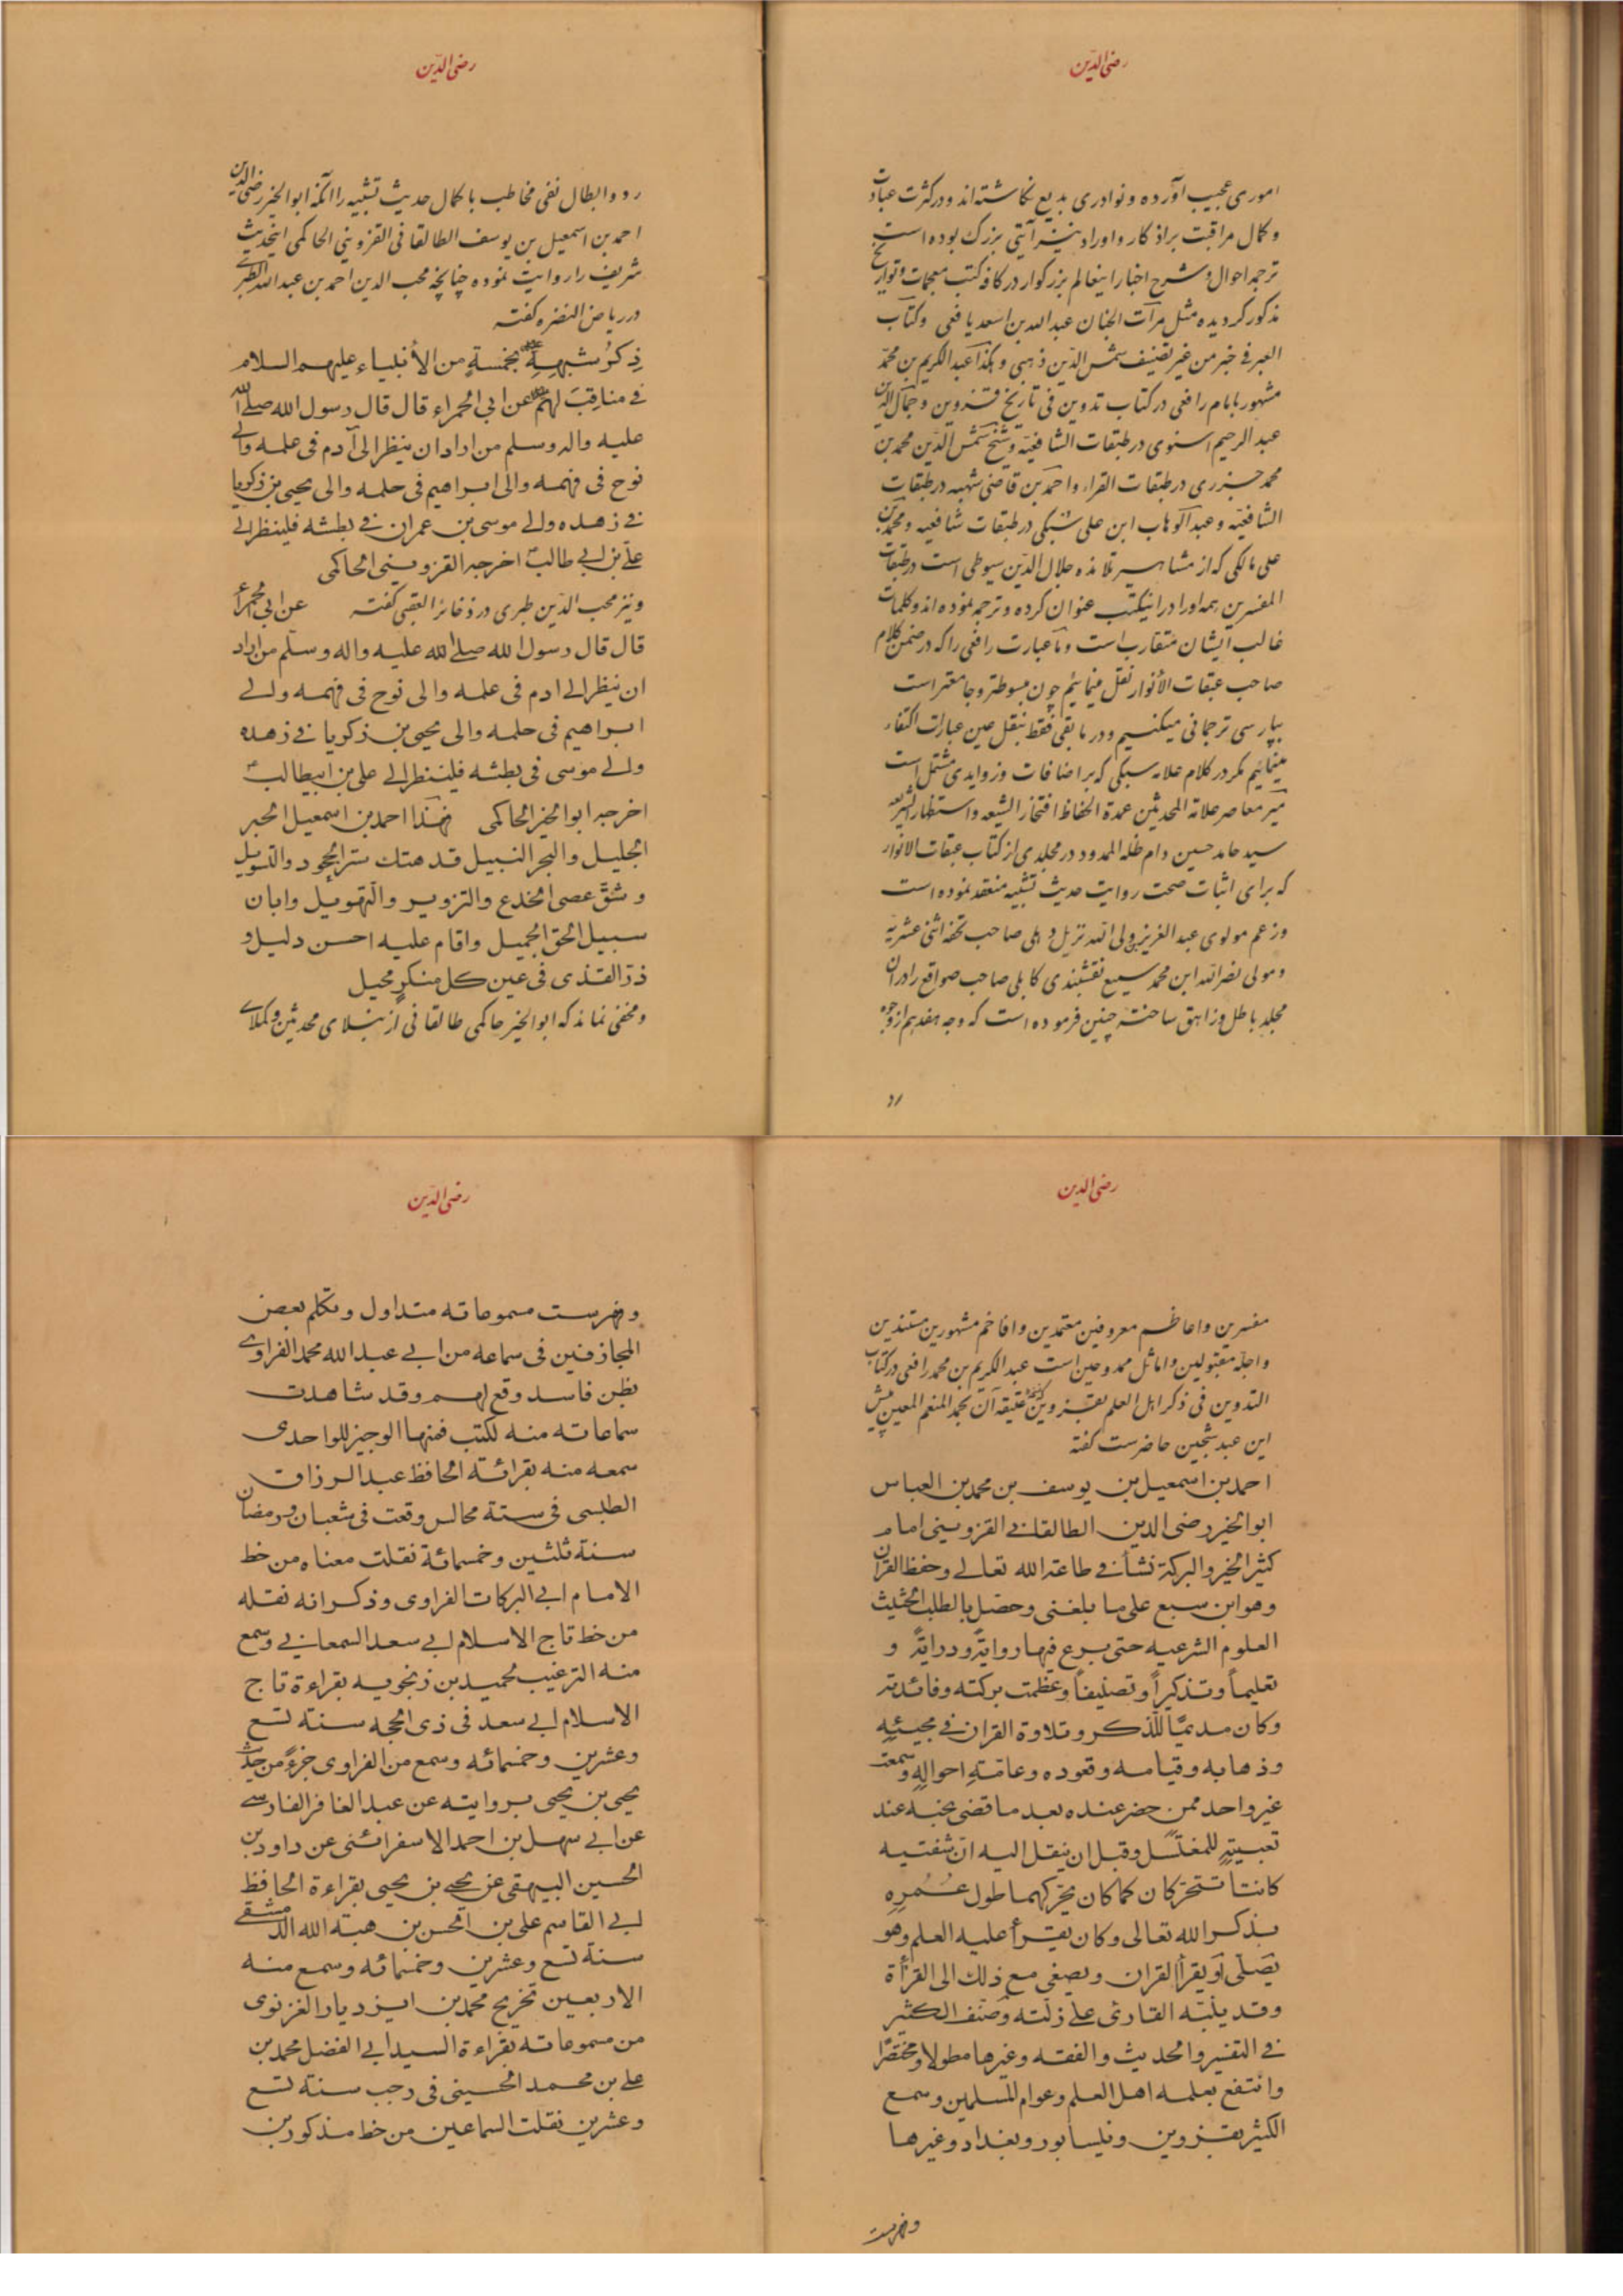 رضی الدین
اموری عجیب آورده و نوادری بدیع نگاشته‌اند و در کثرت عبادت
و کمال مراقبت بر اذکار و اوراد نیز آیتی بزرک بوده است
ترجمه احوال و شرح اخبار اینعالم بزرکوار در کافه کتب معجمات و تواریخ
مذکور کردیده مثل مرآت الجنان عبدالله بن اسعد یافعی و کتاب
العبر فی خبر من غبر تصنیف شمس الدین ذهبی و هکذا عبدالکریم بن محمد
مشهور بامام رافعی در کتاب تدوین فی تاریخ قزوین و جمال الدین
عبدالرحیم اسنوی در طبقات الشافعیه و شیخ شمس الدین محمد بن
محمد جزری در طبقات القراء و احمد بن قاضی شهبه در طبقات
الشافعیه و عبدالوهاب ابن علی سبکی در طبقات شافعیه و محمد بن
علی مالکی که از مشاهیر تلامذه جلال الدین سیوطی است در طبقات
المفسرین همه او را در اینکتب عنوان کرده و ترجمه نموده‌اند و کلمات
غالب ایشان متقارب است و ما عبارت رافعی را که در ضمن کلام
صاحب عبقات الأنوار نقل مینمائیم چون مبسوطتر و جامعتر است
بپارسی ترجمانی میکنیم و در مابقی فقط بنقل عین عبارات اکتفاء
مینمائیم مکر در کلام علامه سبکی که بر اضافات و زوایدی مشتمل است
میر معاصر علامة المحدثین عمدة الحفاظ افتخار الشیعه و استظهار الشریعه
سید حامد حسین دام ظله الممدود در مجلدی از کتاب عبقات الانوار
که برای اثبات صحت روایت حدیث تشبیه منعقد نموده است
و زعم مولوی عبدالعزیز بن ولی الله نزیل دهلی صاحب تحفه اثنی عشریه
و مولی نصرالله ابن محمد سمیع نقشبندی کابلی صاحب صواقع را در آن
مجلد باطل و زاهق ساخته چنین فرموده است که وجه هفدهم از وجوه
رد
رضی الدین
رد و ابطال نفی مخاطب با کمال حدیث تشبیه را آنکه ابوالخیر رضی الدین
احمد بن اسمعیل بن یوسف الطالقانی القزوینی الحاکمی اینحدیث
شریف را روایت نموده چنانچه محب الدین احمد بن عبدالله الطبری
در ریاض النضره کفته
ذِکرُ شبهِهِ بخمسةٍ من الأنبیاء علیهم السلام
فی مناقبَ لهم عن ابی الحمراء قال قال رسول الله صلی الله
علیه واله وسلم من اراد ان ینظر الی آدم فی علمه والی
نوح فی فهمه والی ابراهیم فی حلمه والی یحیی بن زکریا
فی زهده والی موسی بن عمران فی بطشه فلینظر الی
علی بن ابی طالب اخرجه القزوینی الحاکمی
و نیز محب الدین طبری در ذخائر العقبی کفته عن ابی الحمراء
قال قال رسول الله صلی الله علیه واله وسلم من اراد
ان ینظر الی ادم فی علمه والی نوح فی فهمه والی
ابراهیم فی حلمه والی یحیی بن زکریا فی زهده
والی موسی فی بطشه فلینظر الی علی بن ابیطالب
اخرجه ابو الخیر الحاکمی فهذا احمد بن اسمعیل الحبر
الجلیل والبحر النبیل قد هتك ستر الجحود والتسویل
و شقّ عصی الخدع والتزویر والتهویل وابان
سبیل الحق الجمیل واقام علیه احسن دلیل و
ذر القذی فی عین کل منکرٍ محیل
و مخفی نماند که ابوالخیر حاکمی طالقانی از نبلای محدثین و کملای
رضی الدین
مفسرین و اعاظم معروفین معتمدین و افاخم مشهورین مستندین
و اجله مقبولین و اماثل ممدوحین است عبدالکریم بن محمد رافعی در کتاب
التدوین فی ذکر اهل العلم بقزوین که نسخه عتیقه آن بحمد المنعم المعین پیش
این عبد شجین حاضرست کفته
احمد بن اسمعیل بن یوسف بن محمد بن العباس
ابو الخیر رضی الدین الطالقانی القزوینی امام
کثیر الخیر والبرکة نشأ فی طاعة الله تعالی وحفظ القران
وهو ابن سبع علی ما بلغنی وحصّل بالطلب الحثیث
العلوم الشرعیه حتی برع فیها روایةً ودرایةً و
تعلیماً وتذکیراً وتصنیفاً وعظمت برکته وفائدته
وکان مدیمًا للذکر وتلاوة القران فی مجیئهِ
وذهابه وقیامه وقعوده وعامّةِ احوالهِ وسمعت
غیر واحد ممن حضر عنده بعد ما قضی نحبه عند
تعبیتهِ للمغتسل وقبل ان ینقل الیه انّ شفتیه
کانتا تتحرّکان کما کان یحرّکهما طول عُمُرِهِ
بذکر الله تعالی وکان یقرأ علیه العلم وهو
یصلّی او یقرأ القران ویصغی مع ذلك الی القرأة
وقد ینبّه القارئ علی زلّته وصنّف الکثیر
فی التفسیر والحدیث والفقه وغیرها مطولا ومختصرًا
وانتفع بعلمه اهل العلم وعوام المسلمین وسمع
الکثیر بقزوین ونیسابور وبغداد وغیرها
وفهرست
رضی الدین
وفهرست مسموعاته متداول وتکلم بعض
المجازفین فی سماعه من ابی عبد الله محمد الفراوی
بظن فاسد وقع لهم وقد شاهدت
سماعاته منه لکتب فمنها الوجیز للواحدی
سمعه منه بقرائة الحافظ عبد الرزاق
الطبسی فی ستة مجالس وقعت فی شعبان ورمضان
سنة ثلثین وخمسمائة نقلت معناه من خط
الامام ابی البرکات الفراوی وذکر انه نقله
من خط تاج الاسلام ابی سعد السمعانی وسمع
منه الترغیب لحمید بن زنجویه بقراءة تاج
الاسلام ابی سعد فی ذی الحجه سنة تسع
وعشرین وخمسمائه وسمع من الفراوی جزءً من حدیث
یحیی بن یحیی بروایته عن عبد الغافر الفارسی
عن ابی سهل بن احمد الاسفرائنی عن داود بن
الحسین البیهقی عن یحیی بن یحیی بقراءة الحافظ
ابی القاسم علی بن الحسن بن هبة الله الدمشقی
سنة تسع وعشرین وخمسمائه وسمع منه
الاربعین تخریج محمد بن ایزدیار الغزنوی
من مسموعاته بقراءة السید ابی الفضل محمد بن
علی بن محمد الحسینی فی رجب سنة تسع
وعشرین نقلت السماعین من خط مذکورین